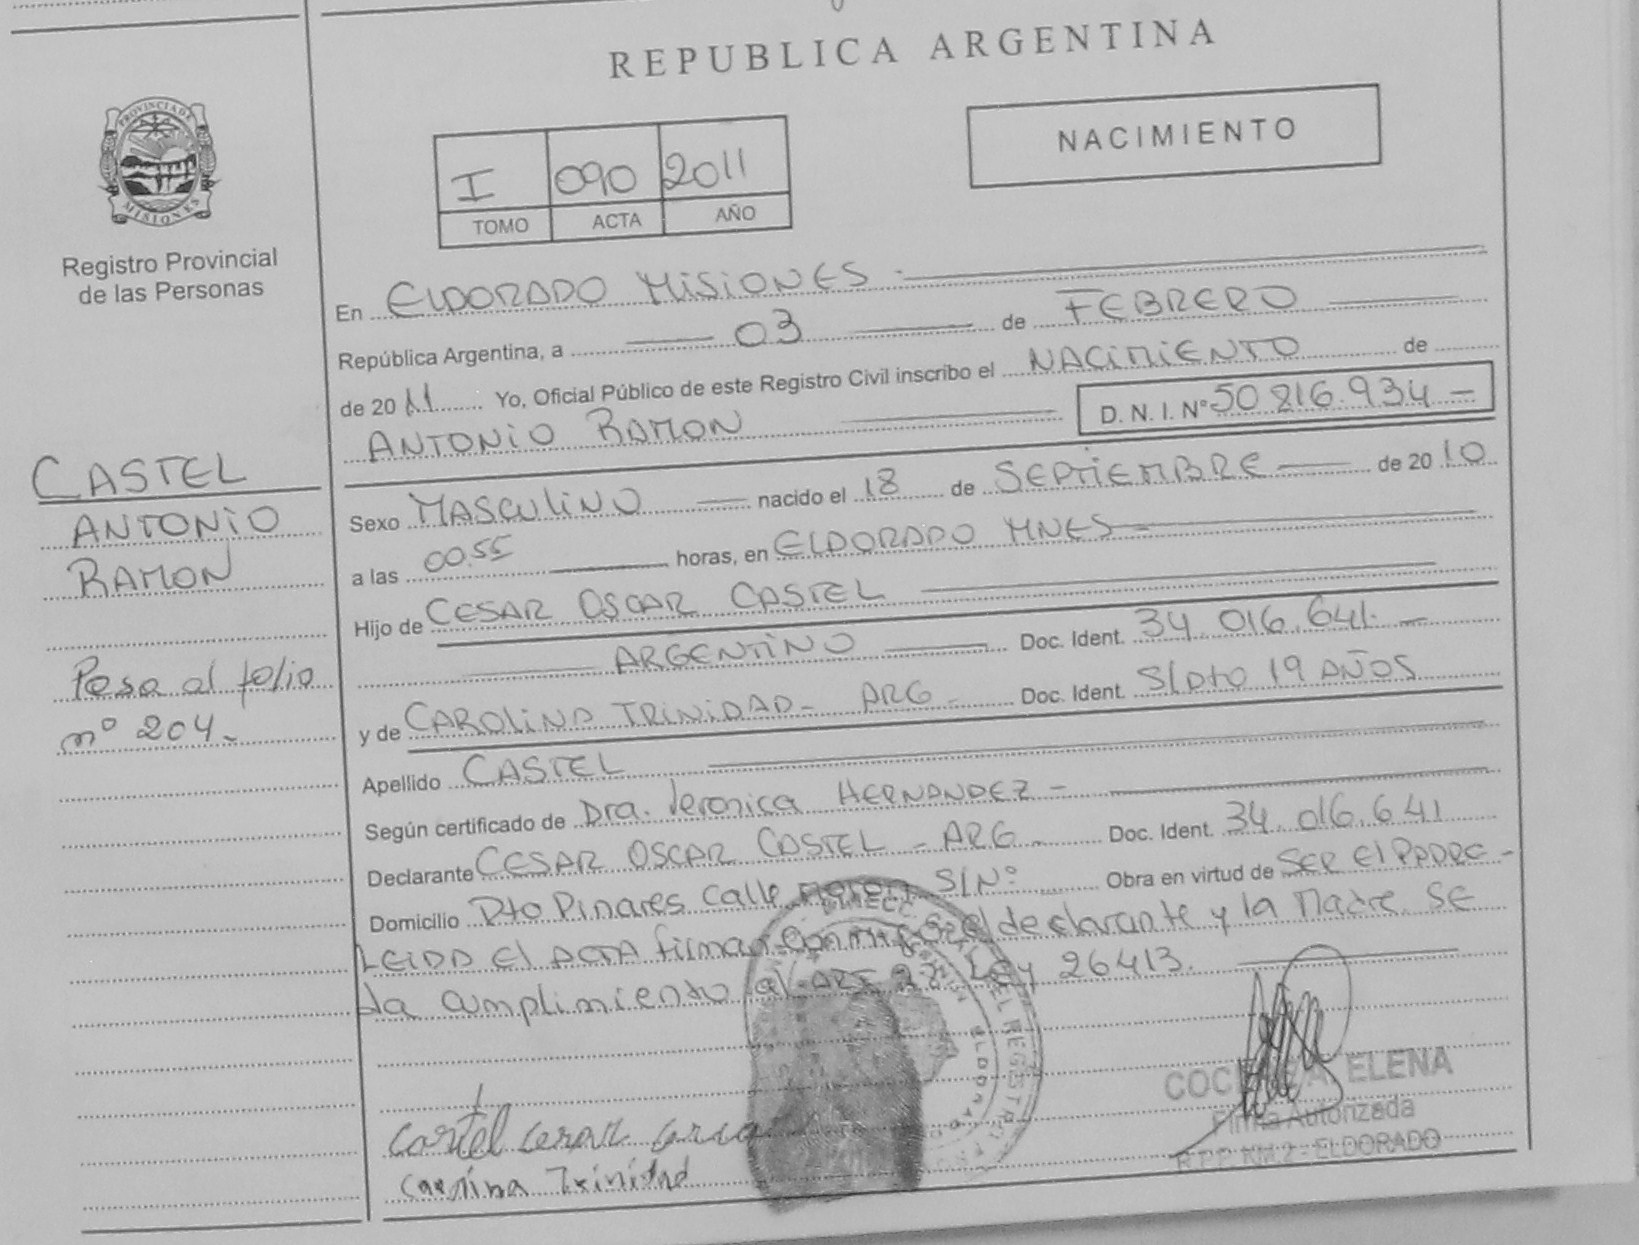 REPUBLICA ARGENTINA
PROVINCIA DE
MISIONES
Registro Provincial
de las Personas
NACIMIENTO
I 090 2011
TOMO ACTA AÑO
En ELDORADO MISIONES
República Argentina, a 03 de FEBRERO
de 2011 Yo, Oficial Público de este Registro Civil inscribo el NACIMIENTO de
ANTONIO RAMON D. N. I. Nº 50 816.934 -
CASTEL
ANTONIO
RAMON
Pasa al folio
nº 204-
Sexo MASCULINO nacido el 18 de SEPTIEMBRE de 2010
a las 00.55 horas, en ELDORADO MNES-
Hijo de CESAR OSCAR CASTEL
ARGENTINO Doc. Ident. 34.016.641.-
y de CAROLINA TRINIDAD- ARG- Doc. Ident. S/Dto 19 AÑOS
Apellido CASTEL
Según certificado de Dra. Veronica HERNANDEZ -
Declarante CESAR OSCAR CASTEL - ARG- Doc. Ident. 34.016.641
Domicilio Bto Pinares Calle S/Nº Obra en virtud de SER El PADRE-
LEIDA El ACTA firman conmigo el declarante y la Madre. SE
da cumplimiento al ART 27 Ley 26413.
Castel Cesar Oscar
Carolina Trinidad
ELENA
Firma Autorizada
R.P.P. KM.2 - ELDORADO